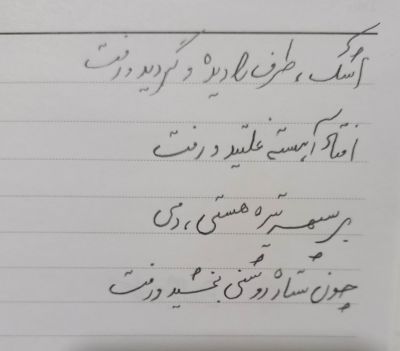 اشک، طرف دیده را گردید و رفت
اوفتاد آهسته غلتید و رفت
بر سپهر تیره هستی، دمی
چون ستاره روشنی بخشید و رفت